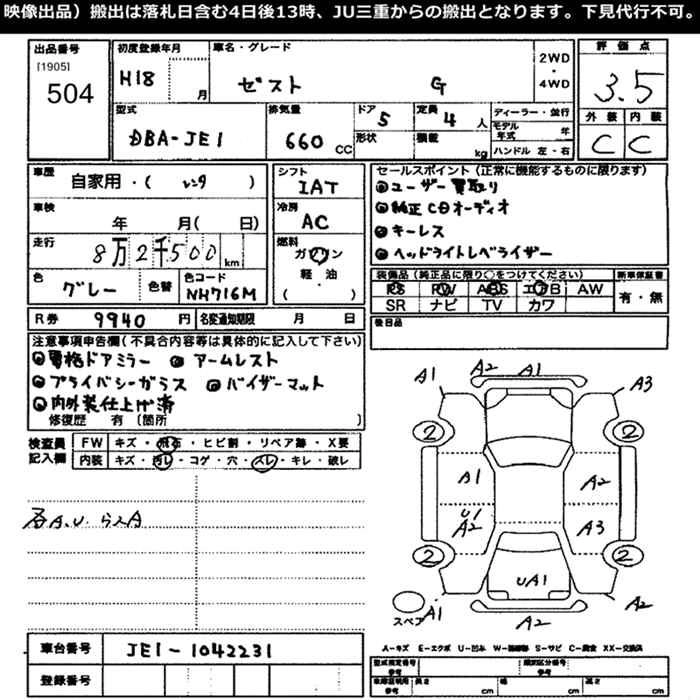 映像出品）搬出は落札日含む4日後13時、JU三重からの搬出となります。下見代行不可。
出品番号
[1905]
504
初度登録年月
H18 月
車名・グレード
ゼスト G
2WD
・
4WD
評価点
3.5
型式
DBA-JE1
排気量
660 CC
ドア
5
形状
定員
4 人
積載
kg
ディーラー・並行
モデル年式 年
ハンドル 左・右
外装 内装
C C
車歴
自家用・( レンタ )
シフト
IAT
車検
年 月( 日)
冷房
AC
走行
8万2千500 km
燃料
ガソリン
軽・油
( )
色
グレー
色替
色コード
NH716M
R券 9940 円 名変通知期限 月 日
セールスポイント (正常に機能するものに限ります)
◎ユーザー買取り
◎純正CDオーディオ
◎キーレス
◎ヘッドライトレベライザー
装備品 (純正品に限り○をつけてください)
PS PW ABS エアB AW
SR ナビ TV カワ
新車保証書
有・無
後日品
注意事項申告欄(不具合内容等は具体的に記入して下さい)
◎電格ドアミラー ◎アームレスト
◎プライバシーガラス ◎バイザーマット
◎内外装仕上げ済
修復歴 有 (箇所 )
検査員
記入欄
FW キズ・飛石・ヒビ割・リペア跡・X要
内装 キズ・汚レ・コゲ・穴・スレ・キレ・破レ
各A.U. ら入A
A1 A2 A1 A3
2 2
A1 A2
U1
A2 A3
2 2
UA1
スペア
A1 A2 A2
A―キズ E―エクボ U―凹み W―補修跡 S―サビ C―腐食 XX―交換済
車台番号
JE1-1042231
登録番号
型式指定番号
参考
類別区分番号
参考
車庫証明用
参考
長さ cm 幅 cm 高さ cm